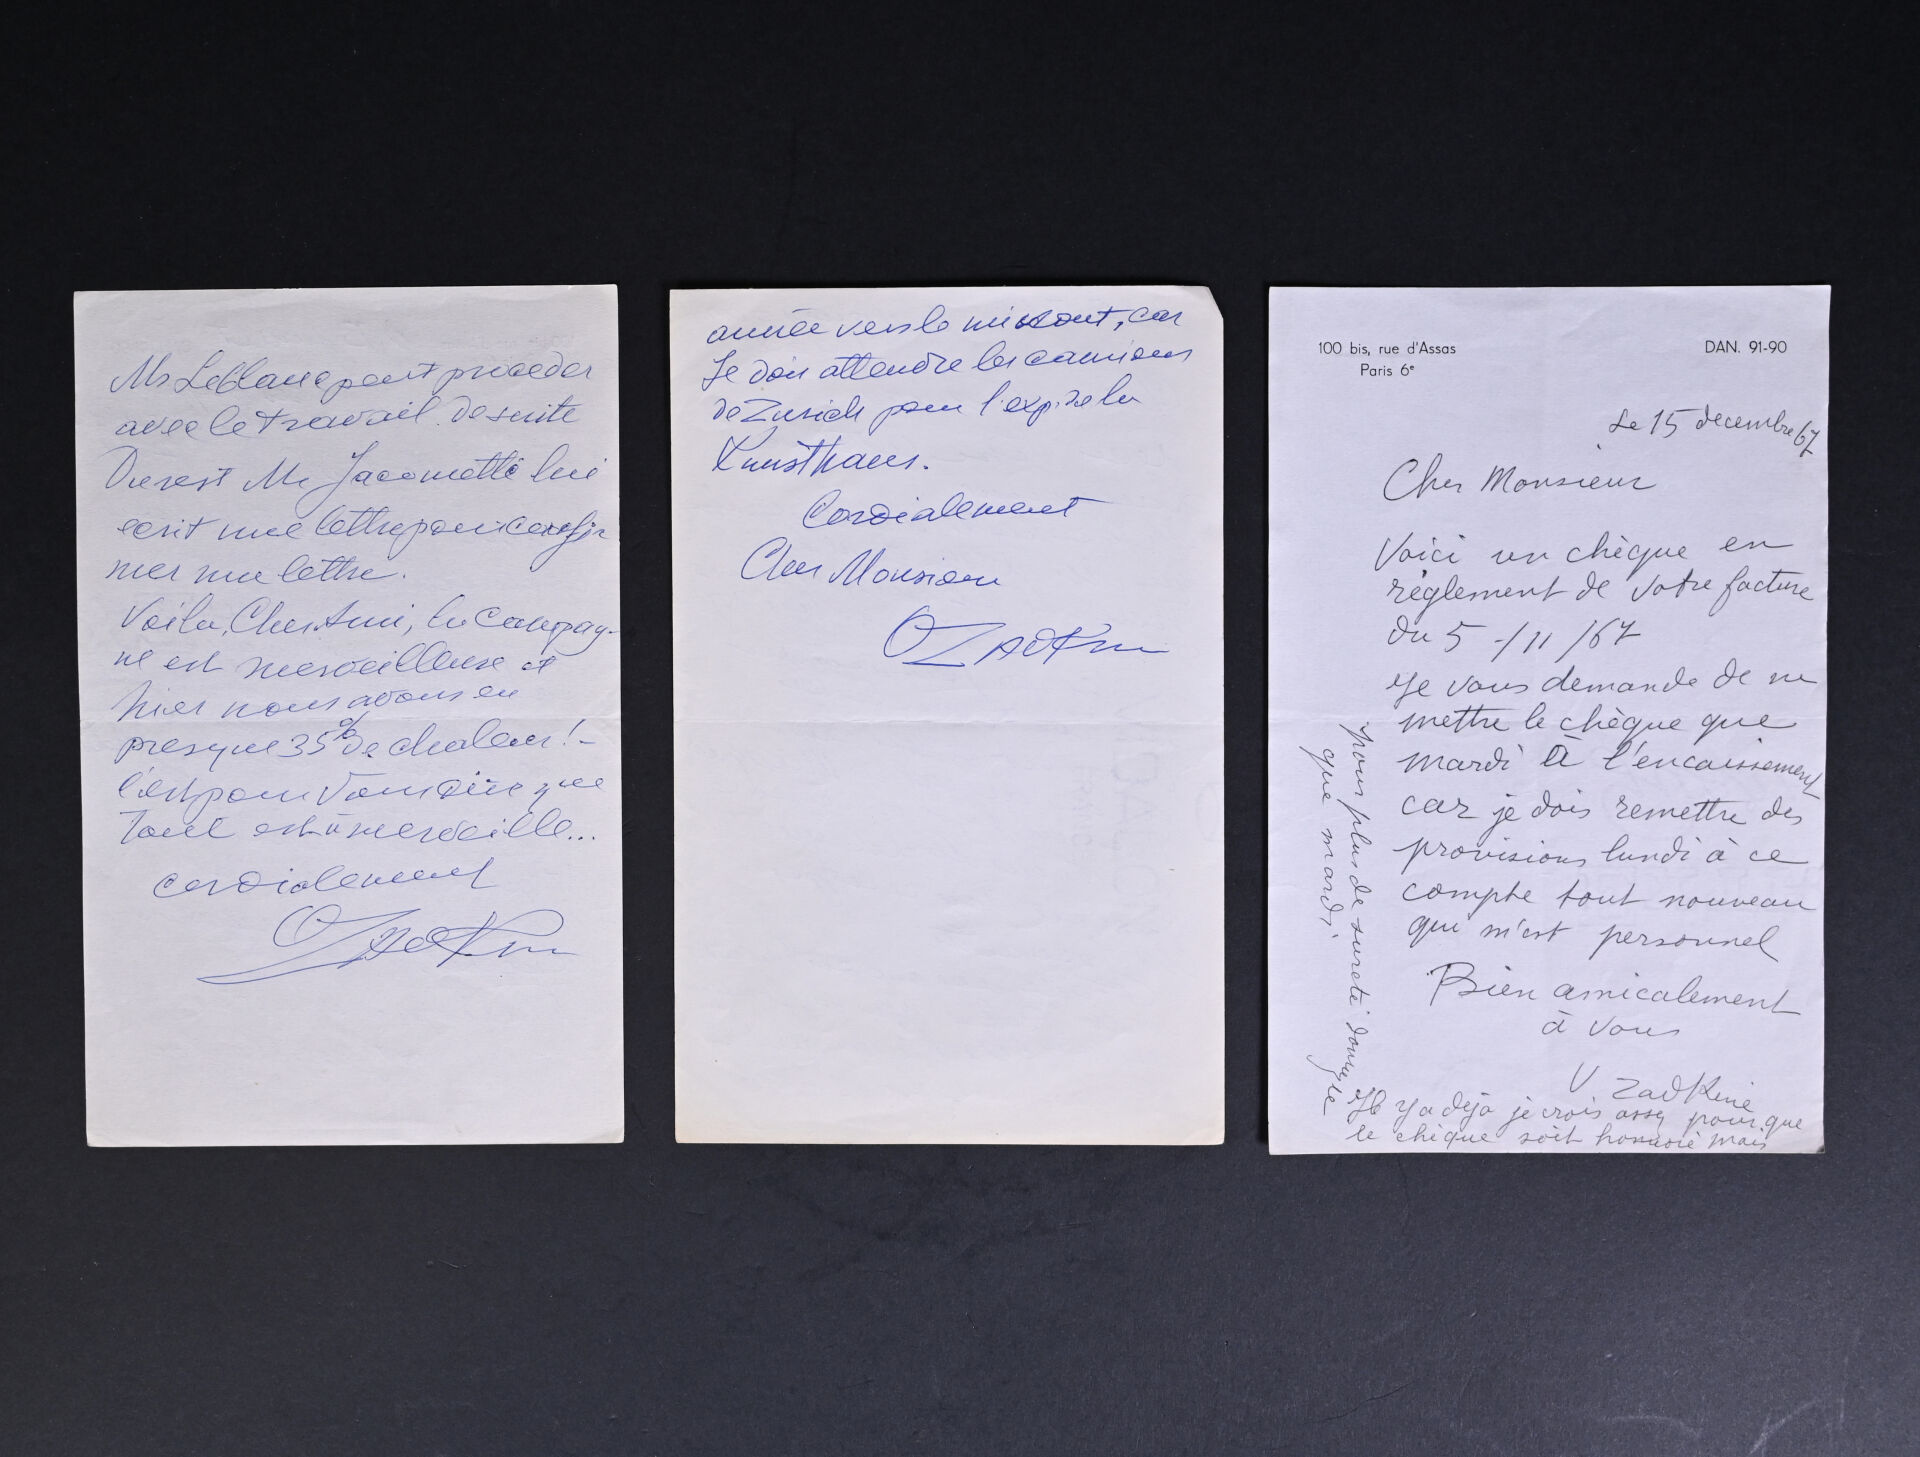 Mr Leblanc peut proceder
avec le travail. De suite
Du rest Mr Jacometti lui
ecrit une lettre pour confir
mer ma lettre.
Voila, Cher Ami, la campag-
ne est merveilleuse et
hier nous avons eu
presque 35% de chaleur! -
C'est pour vous dire que
tout est à merveille...
Cordialement
O Zadkine
année vers le mi aout, car
Je dois attendre les camions
de Zurich pour l'exp. de la
Kunsthaus.
Cordialement
Cher Monsieur
O Zadkine
100 bis, rue d'Assas
Paris 6e
DAN. 91-90
Le 15 decembre 67
Cher Monsieur
Voici un chèque en
règlement de votre facture
du 5 -/11/67
Je vous demande de ne
mettre le chèque que
mardi à l'encaissement
car je dois remettre des
provisions lundi à ce
compte tout nouveau
qui m'est personnel
Bien amicalement
à vous
V Zadkine
Il y a déjà je crois assez pour que
le chèque soit honoré mais
pour plus de sureté donc le
que mardi